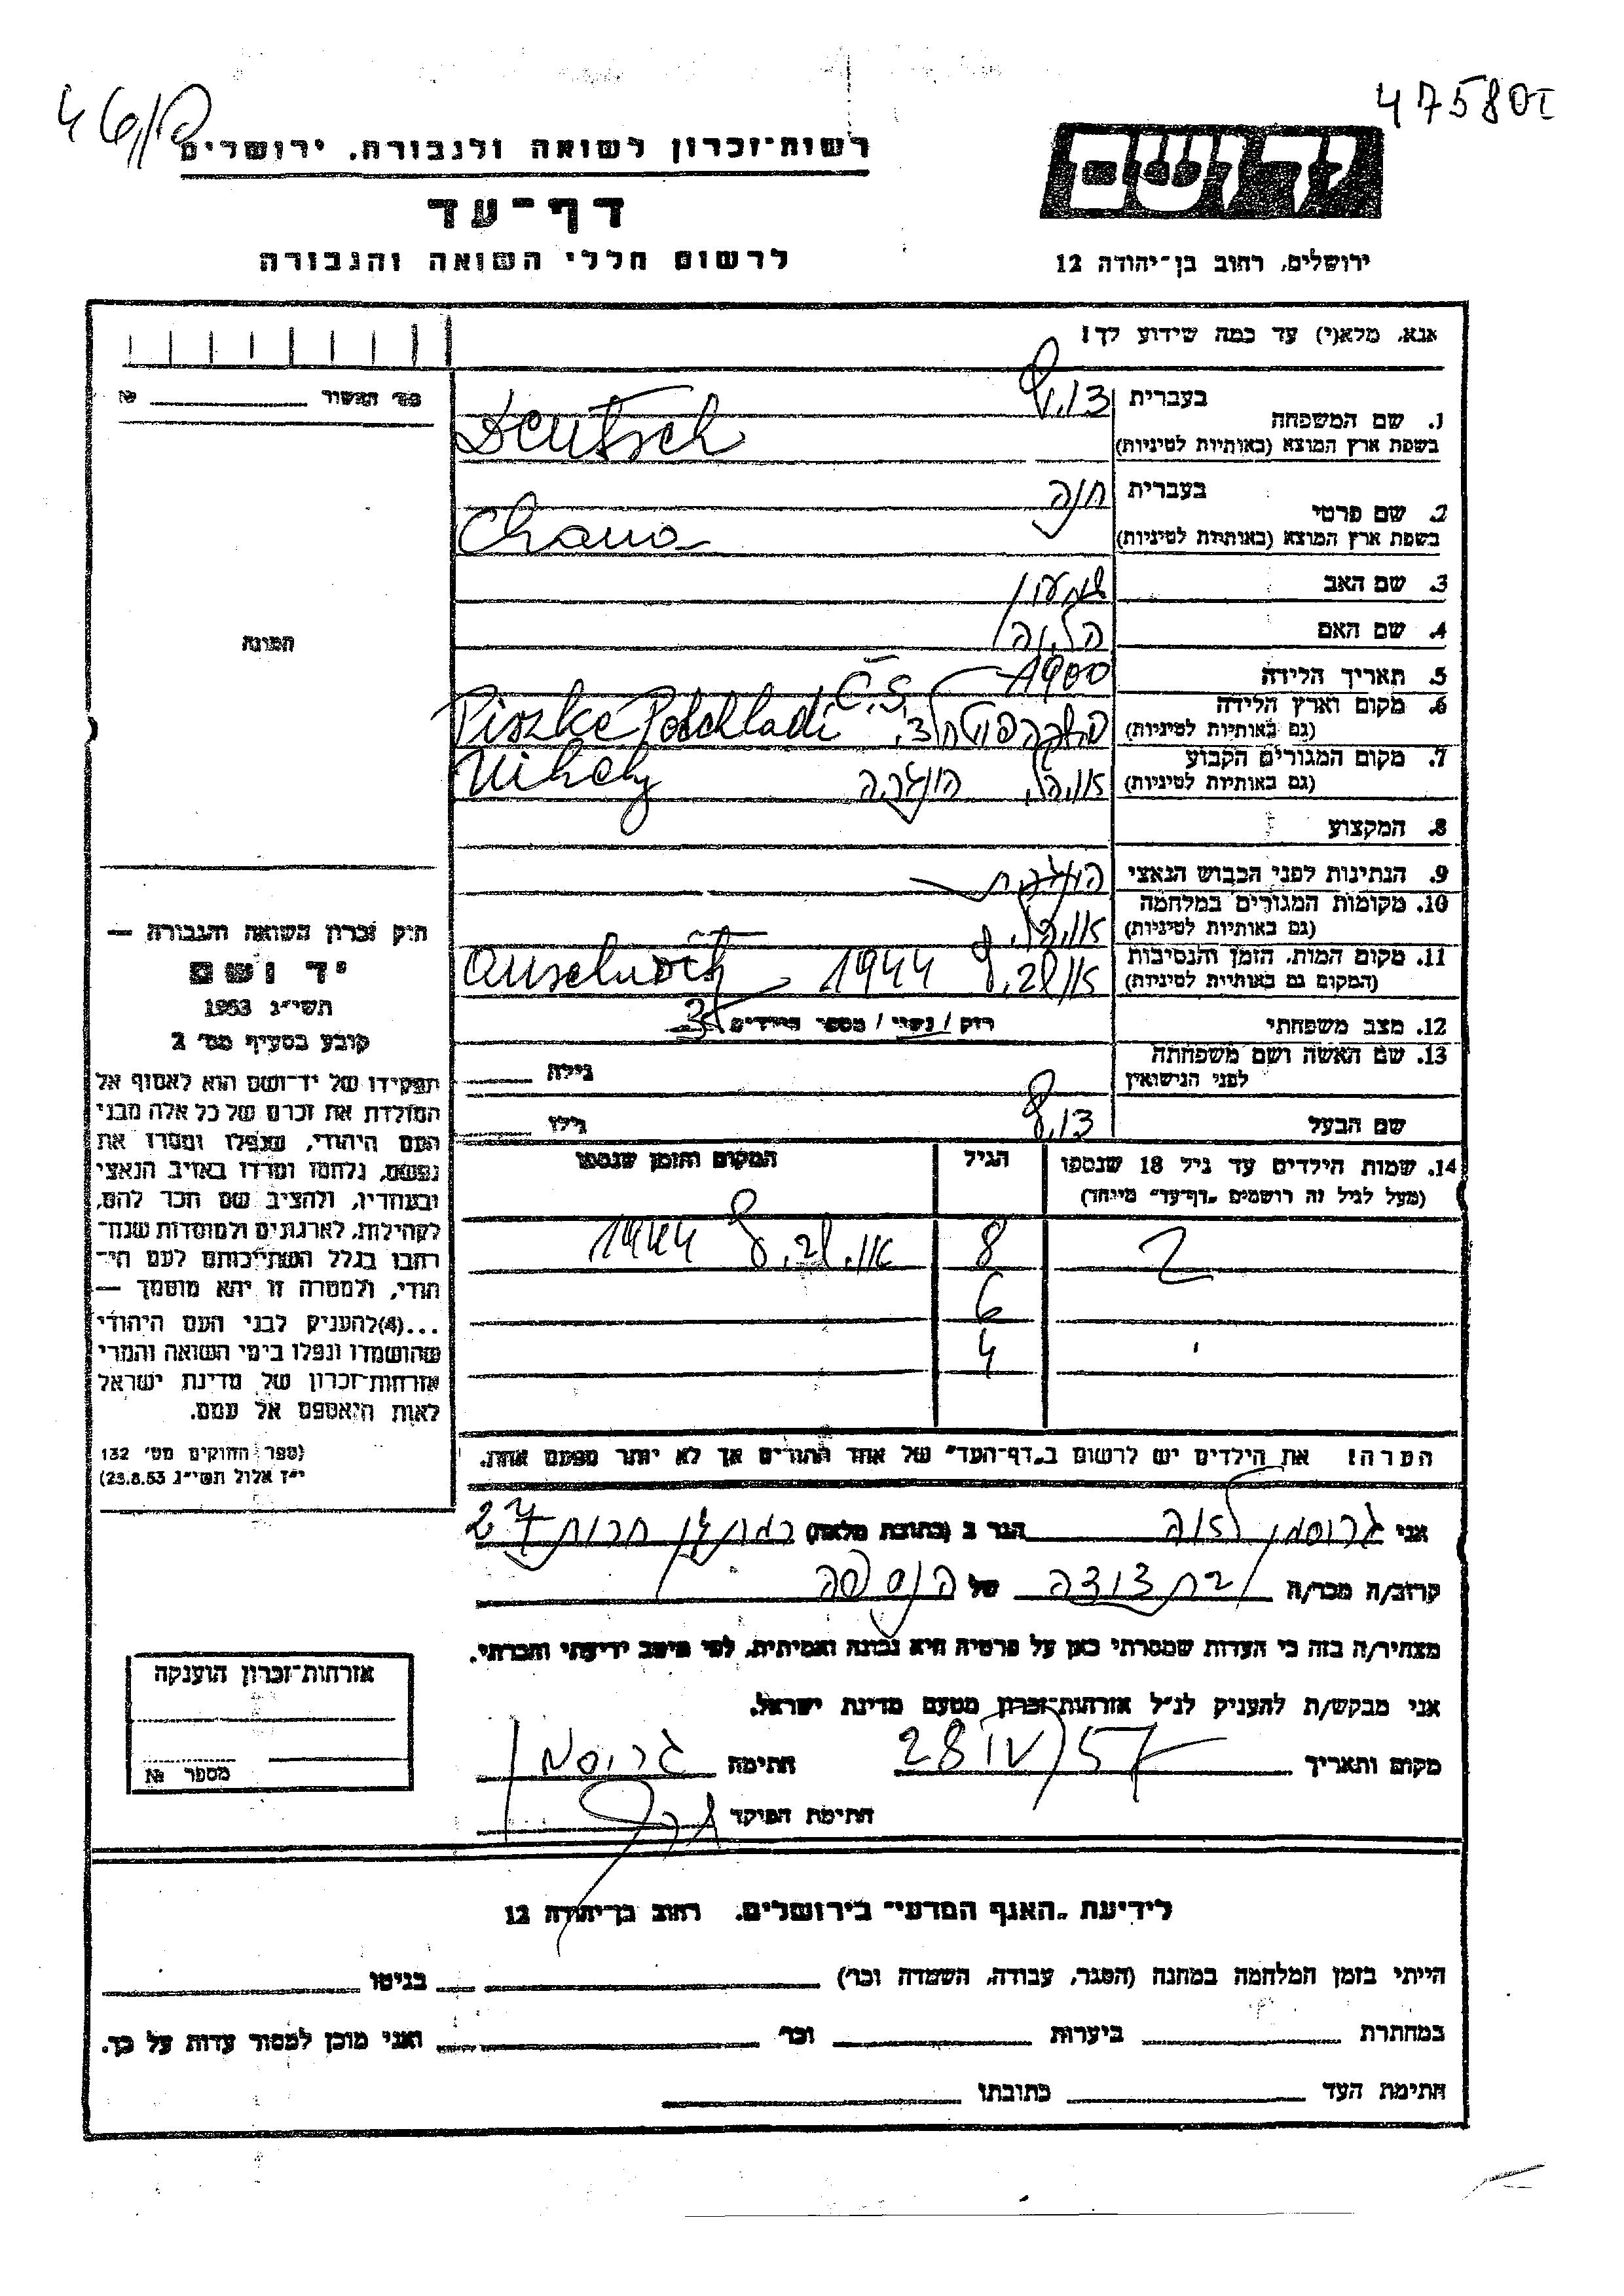 46/פ
47580I
רשות־זכרון לשואה ולגבורה, ירושלים
ידושם
דף־עד
לרשום חללי השואה והגבורה
ירושלים, רחוב בן־יהודה 12
אנא, מלא(י) עד כמה שידוע לך!
מס' האשור № 
בעברית דייטש
1. שם המשפחה
בשפת ארץ המוצא (באותיות לטיניות) Deutsch
בעברית חנה
2. שם פרטי
בשפת ארץ המוצא (באותיות לטיניות) Chana
3. שם האב שמעון
4. שם האם
5. תאריך הלידה 1900
6. מקום וארץ הלידה
(גם באותיות לטיניות) Č.S.
7. מקום המגורים הקבוע
(גם באותיות לטיניות) אויהל, הונגריה Uihely
8. המקצוע
9. הנתינות לפני הכבוש הנאצי הונגרית
10. מקומות המגורים במלחמה
(גם באותיות לטיניות) אויהל,
11. מקום המות, הזמן והנסיבות
(המקום גם באותיות לטיניות) 1944
12. מצב משפחתי רווק / נשוי / מספר הילדים 3
13. שם האשה ושם משפחתה
לפני הנישואין גילה
שם הבעל גילו
14. שמות הילדים עד גיל 18 שנספו הגיל המקום והזמן שנספו
(מעל לגיל זה רושמים "דף־עד" מיוחד)
8 1944
6
4
הערה! את הילדים יש לרשום ב"דף־העד" של אחד ההורים אך לא יותר מפעם אחת.
התמונה
חוק זכרון השואה והגבורה —
יד ושם
תשי"ג 1953
קובע בסעיף מס' 2
תפקידו של יד־ושם הוא לאסוף אל
המולדת את זכרם של כל אלה מבני
העם היהודי, שנפלו ומסרו את
נפשם, נלחמו ומרדו באויב הנאצי
ובעוזריו, ולהציב שם וזכר להם,
לקהילות, לארגונים ולמוסדות שנח־
רבו בגלל השתייכותם לעם הי־
הודי, ולמטרה זו יהא מוסמך —
...(4)להעניק לבני העם היהודי
שהושמדו ונפלו בימי השואה והמרי
אזרחות־זכרון של מדינת ישראל
לאות היאספם אל עמם.
(ספר החוקים מס' 132
י"ז אלול תשי"ג 28.8.53)
אני גרוסמן הגר ב (כתובת מלאה) רמת גן חרות 27
קרוב/ה מכר/ה בת דודה של הנספה
מצהיר/ה בזה כי העדות שמסרתי כאן על פרטיה היא נכונה ואמיתית, לפי מיטב ידיעתי והכרתי.
אני מבקש/ת להעניק לנ"ל אזרחות־זכרון מטעם מדינת ישראל.
מקום ותאריך 28 IV 57 חתימה גרוסמן
חתימת הפוקד
אזרחות־זכרון הוענקה
מספר №
לידיעת "האגף המדעי" בירושלים, רחוב בן־יהודה 12
הייתי בזמן המלחמה במחנה (הסגר, עבודה, השמדה וכו') בגיטו
במחתרת ביערות וכו' ואני מוכן למסור עדות על כך.
חתימת העד כתובתו